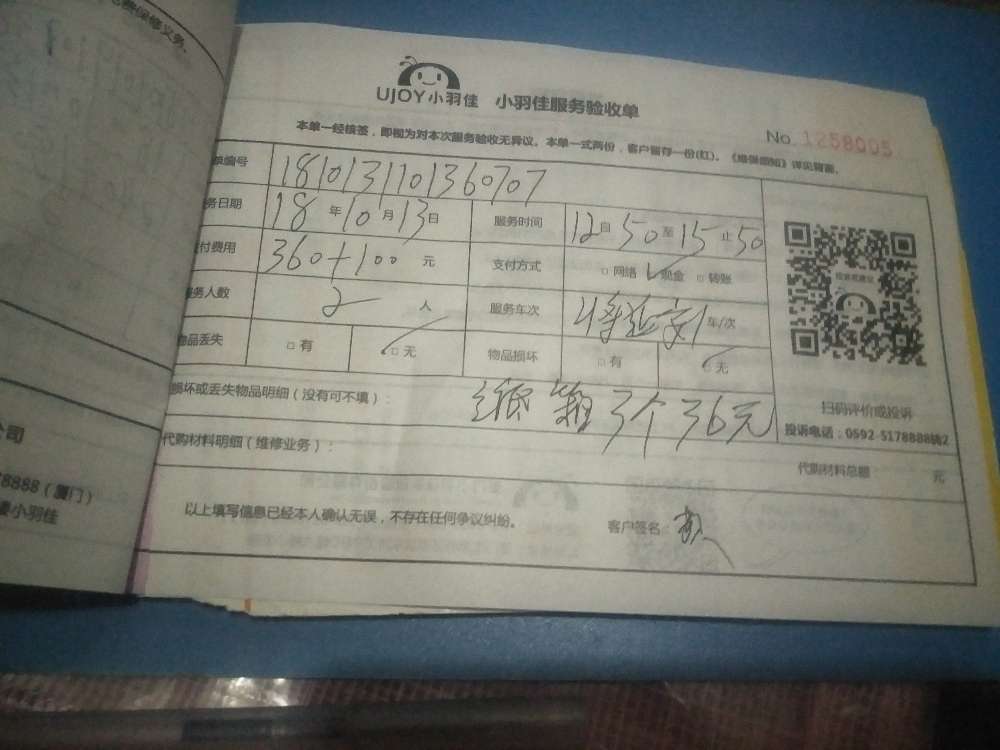 费保修义务。
UJOY小羽佳 小羽佳服务验收单
No. 1258005
本单一经核签，即视为对本次服务验收无异议。本单一式两份，客户留存一份(红)。《维保须知》详见背面。
单编号 1810131101360707
务日期 18 年 10 月 13 日 服务时间 12 50 至 15 止 50
付费用 360+100 元 支付方式 □ 网络 ✓ 现金 □ 转账
务人数 2 人 服务车次 车/次
物品丢失 □ 有 ✓□ 无 物品损坏 □ 有 ✓ 无
损坏或丢失物品明细（没有可不填）： 纸箱3个36元
扫码评价或投诉
投诉电话：0592-5178888转2
代购材料明细（维修业务）： 代购材料总额 元
以上填写信息已经本人确认无误，不存在任何争议纠纷。 客户签名：
公司
78888（厦门）
小羽佳